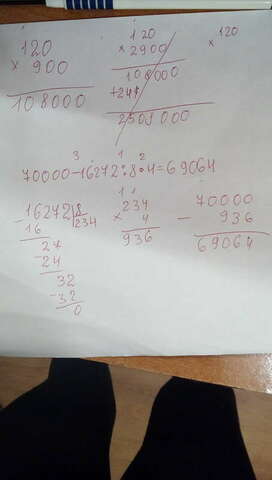 120
× 900
108000
120
× 2900
108000
+ 24
2508000
× 120
3 1 2
70000-16272:8•4=69064
16272|8
- 16 234
27
- 24
32
- 32
0
1 1
234
× 4
936
70000
- 936
69064